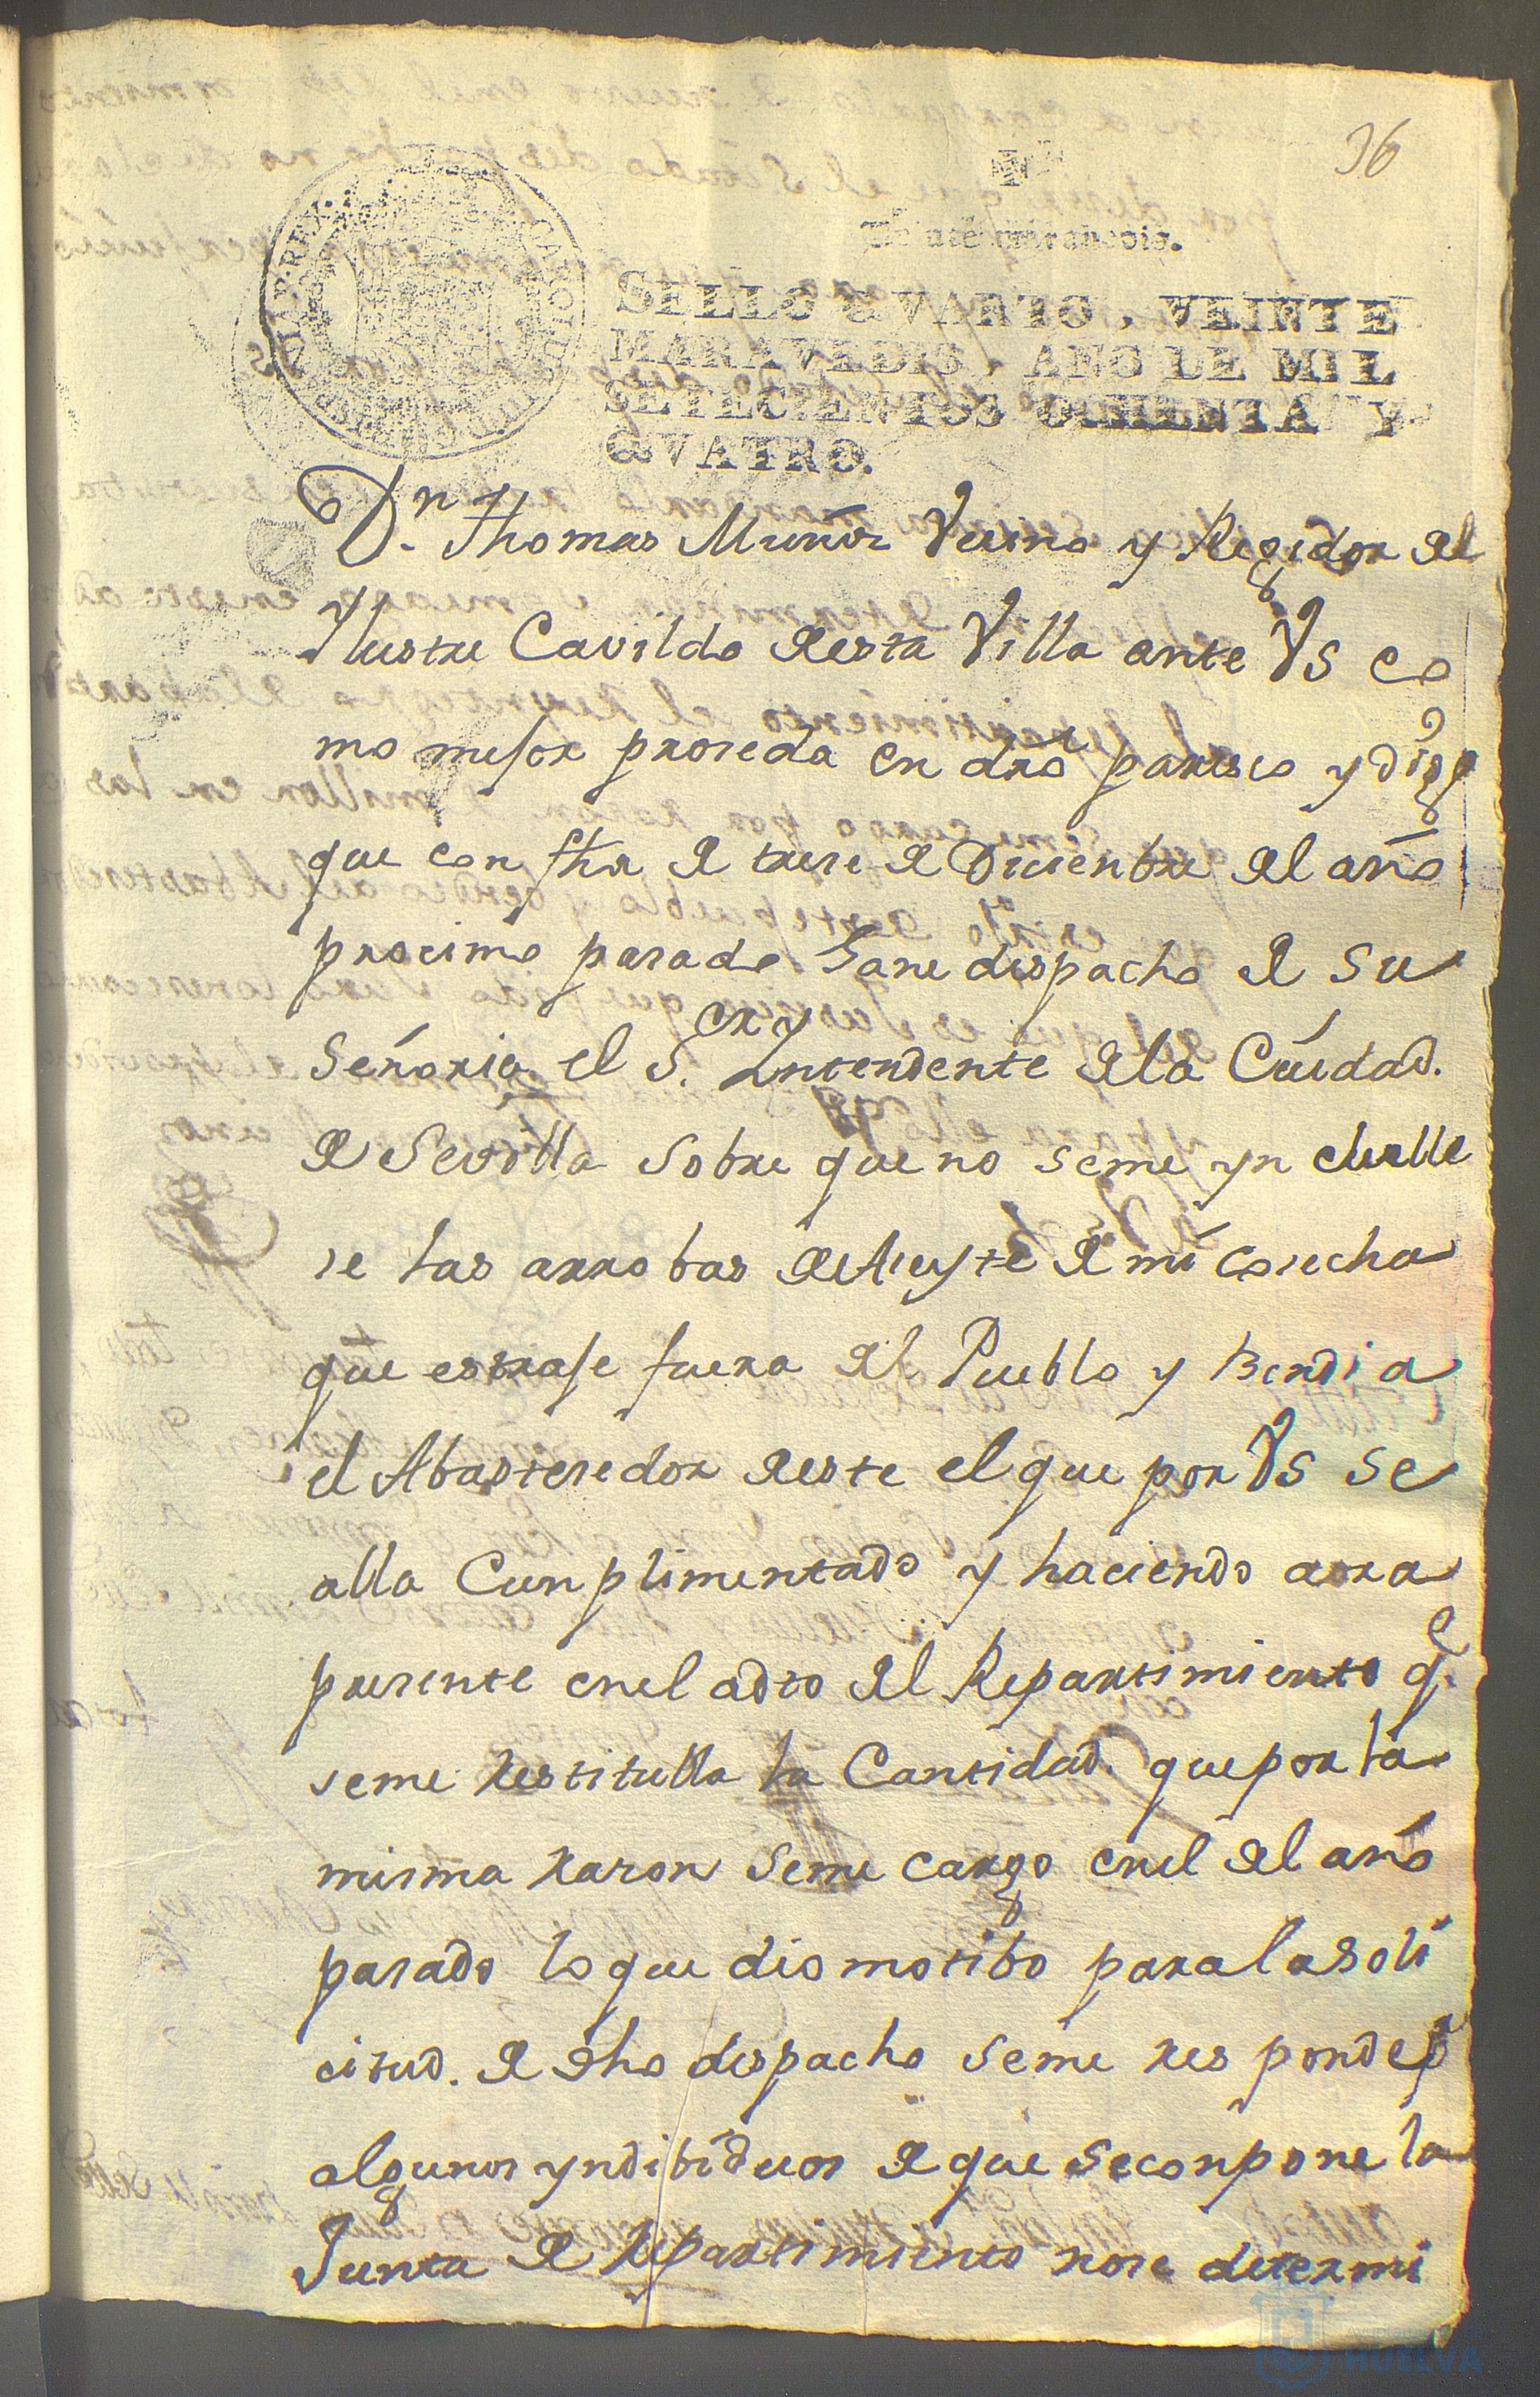 36
Veinte maravedis.
SELLO QVARTO, VEINTE
MARAVEDIS, AÑO DE MIL
SETECIENTOS OCHENTA Y
QVATRO.
Dn. Thomas Muñoz Vecino y Regidor del
Ylustre Cavildo desta Villa ante VS co
mo mejor proceda en dro paresco y digo
que con fha de trece de Diciembre del año
procimo pasado Gane despacho de Su
Señoria el S.or Yntendente dela Ciudad.
de Sevilla sobre que no seme yn clulle
se las arrobas de Aseyte de mi cosecha
que estraje fuera del Pueblo y Bendi a
el Abastesedor deste el que por VS se
alla Cunplimentado y haciendo aora
presente enel adto del Repartimiento q.e
seme Restitulla la Cantidad. que por la
misma razon seme cargo enel del año
pasado lo que dio motibo para la soli
citud. de dho despacho seme responde p.r
algunos yndibiduos de que se conpone la
Junta de Repartimiento nose determi
HUELVA